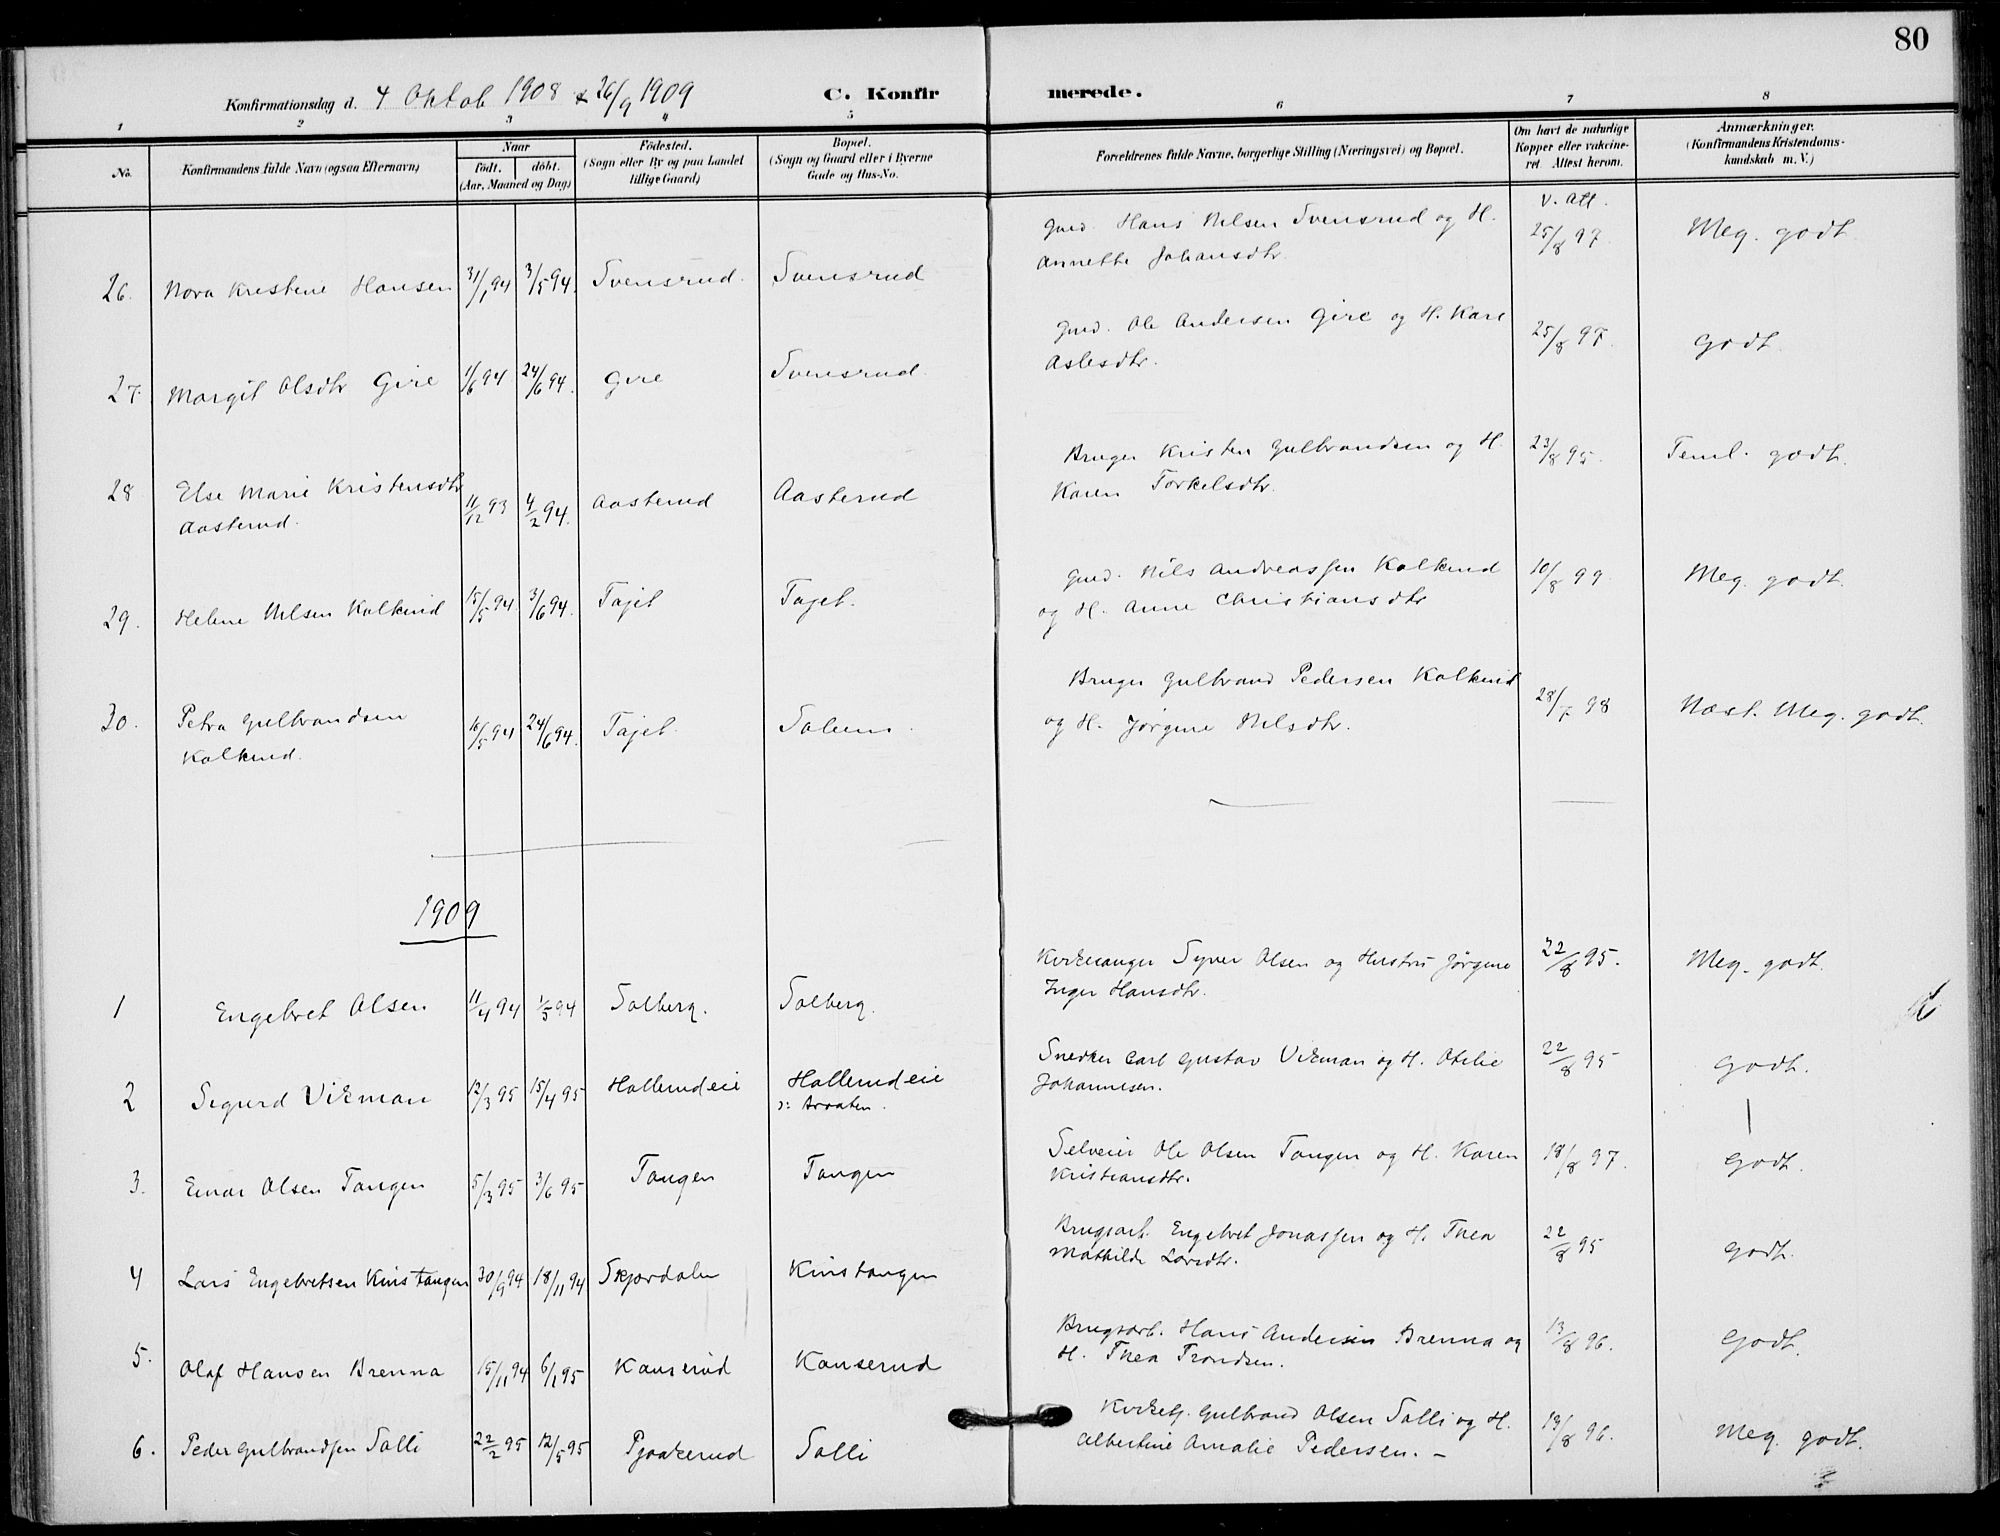 80
Konfirmationsdag d. 4 Oktob 1908 & 26/9 1909 C. Konfirmerede.
1 2 3 4 5 6 7 8
No. Konfirmandens fulde Navn (ogsaa Efternavn) Naar födt. döbt. (Aar, Maaned og Dag) Födested. (Sogn eller By og paa Landet tillige Gaard) Bopæl. (Sogn og Gaard eller i Byerne Gade og Hus-No. Forældrenes fulde Navne, borgerlige Stilling (Næringsvei) og Bopæl. Om havt de naturlige Kopper eller vakcineret Attest herom. Anmærkninger. (Konfirmandens Kristendomskundskab m. V.)
v. Att.
26. Nora Kristine Hansen 31/1 94 3/5 94. Svensrud. Svensrud Gmd. Hans Nilsen Svensrud og H. 25/8 97. Meg. godt.
Annette Johansdtr.
27. Margit Olsdtr Gire 11/6 94 24/6 94. Gire Svensrud. Gmd. Ole Andersen Gire og H. Kari 25/8 97. godt.
Aslesdtr.
28 Else Marie Kristensdtr 11/12 93 4/2 94. Aasterud Aasterud Bruger Kristen Gulbrandsen og H. 23/8 95. Teml. godt.
Aasterud. Karen Torkelsdtr.
29. Helene Nilsen Kalkrud 15/5 94 3/6 94. Tajet Tajet. Gmd. Nils Andreassen Kalkrud 10/8 99. Meg. godt.
og H. Anne Christiansdtr
30. Petra Gulbrandsen 16/5 94 24/6 94. Tajet. Solum. Bruger Gulbrand Pedersen Kalkrud 28/7 98 Næst. Meg. godt.
Kalkrud. og H. Jørgine Nilsdtr.
1909
1 Engebret Olsen 11/4 94 1/5 94 Solberg. Solberg. Kirkesanger Syver Olsen og Hustru Jørgine 22/8 95. Meg. godt.
Inger Hansdtr.
2 Sigurd Vikman 12/3 95 15/4 95 Hallerudeie Hallerudeie Snedker Carl Gustav Vikman og H. Otilie 22/8 95 Godt.
ɔ: Braaten. Johannesen.
3. Einar Olsen Tangen 5/3 95 3/6 95 Tangen Tangen Selveier Ole Olsen Tangen og H. Karen 18/8 97. Godt.
Kristiansdtr.
4 Lars Engebretsen Kinstangen 30/9 94 18/11 94 Skjørdalen Kinstangen Brugsarb. Engebret Jonassen og H. Thea 22/8 95 Godt.
Mathilde Larsdtr.
5. Olaf Hansen Brenna 15/11 94 6/1 95 Kanserud Kanserud Brugsarb. Hans Andersen Brenna og 13/8 96. Godt.
H. Thea Trondsen.
6. Peder Gulbrandsen Solli 22/2 95 12/5 95 Pjaakerud Solli Kirketj. Gulbrand Olsen Solli og H. 19/8 96. Meg. godt.
Albertine Amalie Pedersen. –